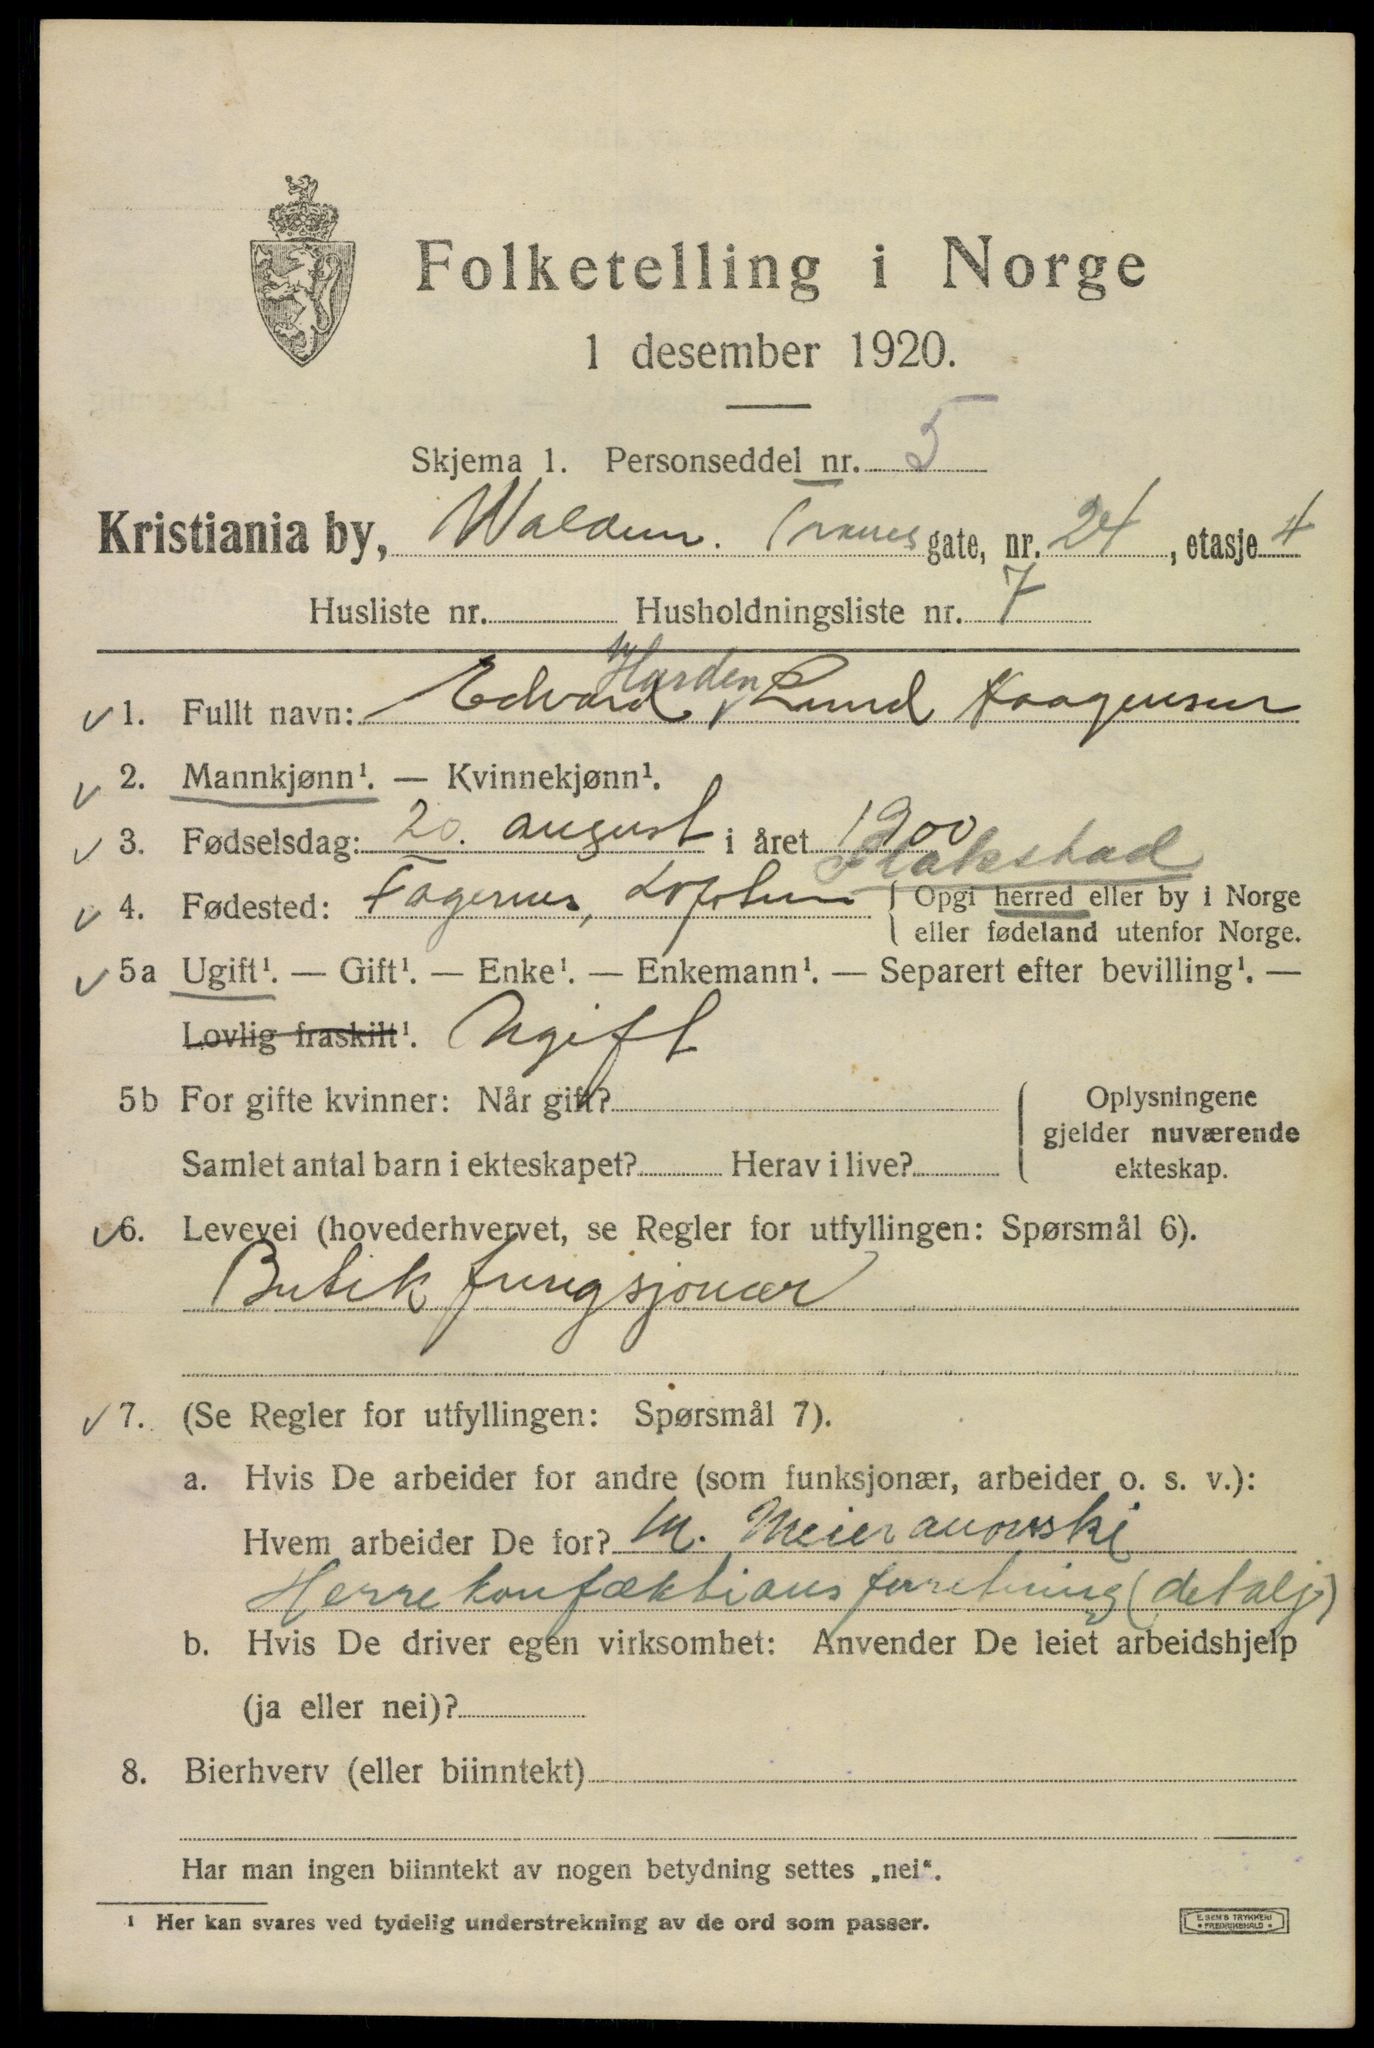 Folketelling i Norge
1 desember 1920.
Skjema 1. Personseddel nr. 5
Kristiania by, Waldem. Tranes gate, nr. 24, etasje 4
Husliste nr. Husholdningsliste nr. 7
Harden
1. Fullt navn: Edvard Lund Haagensen
2. Mannkjønn¹. — Kvinnekjønn¹.
3. Fødselsdag: 20. august i året 1900
Flakstad
4. Fødested: Fagernes, Lofoten Opgi herred eller by i Norge
eller fødeland utenfor Norge.
5a Ugift¹. — Gift¹. — Enke¹. — Enkemann¹. — Separert efter bevilling¹. —
Lovlig fraskilt¹. Ugift
5b For gifte kvinner: Når gift?
Samlet antal barn i ekteskapet? Herav i live?
Oplysningene
gjelder nuværende
ekteskap.
6. Levevei (hovederhvervet, se Regler for utfyllingen: Spørsmål 6).
Butik fungsjonær
7. (Se Regler for utfyllingen: Spørsmål 7).
a. Hvis De arbeider for andre (som funksjonær, arbeider o. s. v.):
Hvem arbeider De for? M. Meieranowski
Herrekonfæktions forretning (detalj)
b. Hvis De driver egen virksomhet: Anvender De leiet arbeidshjelp
(ja eller nei)?
8. Bierhverv (eller biinntekt)
Har man ingen biinntekt av nogen betydning settes „nei“.
¹ Her kan svares ved tydelig understrekning av de ord som passer.
E. SEM'S TRYKKERI
• FREDRIKSHALD •